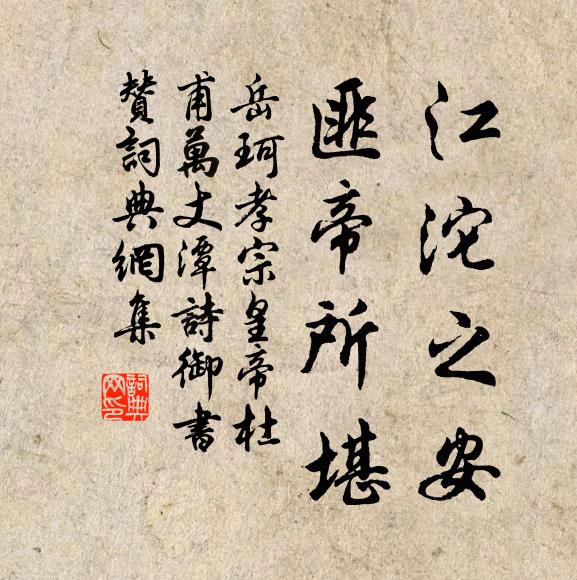 江沱之安
匪帝所堪
岳珂孝宗皇帝杜
甫萬丈潭詩御書
贊詞典網集
詞典
网印